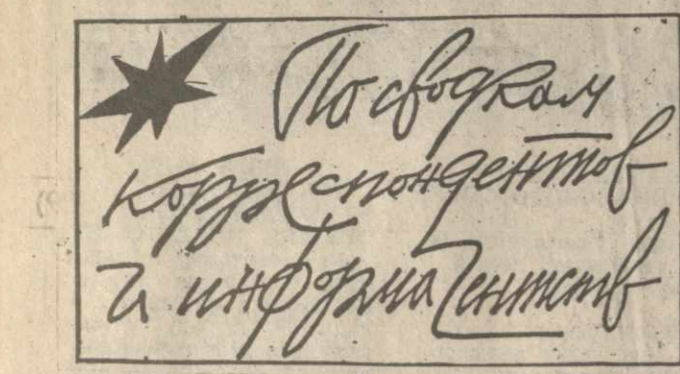 По сводкам
корреспондентов
и информагентств